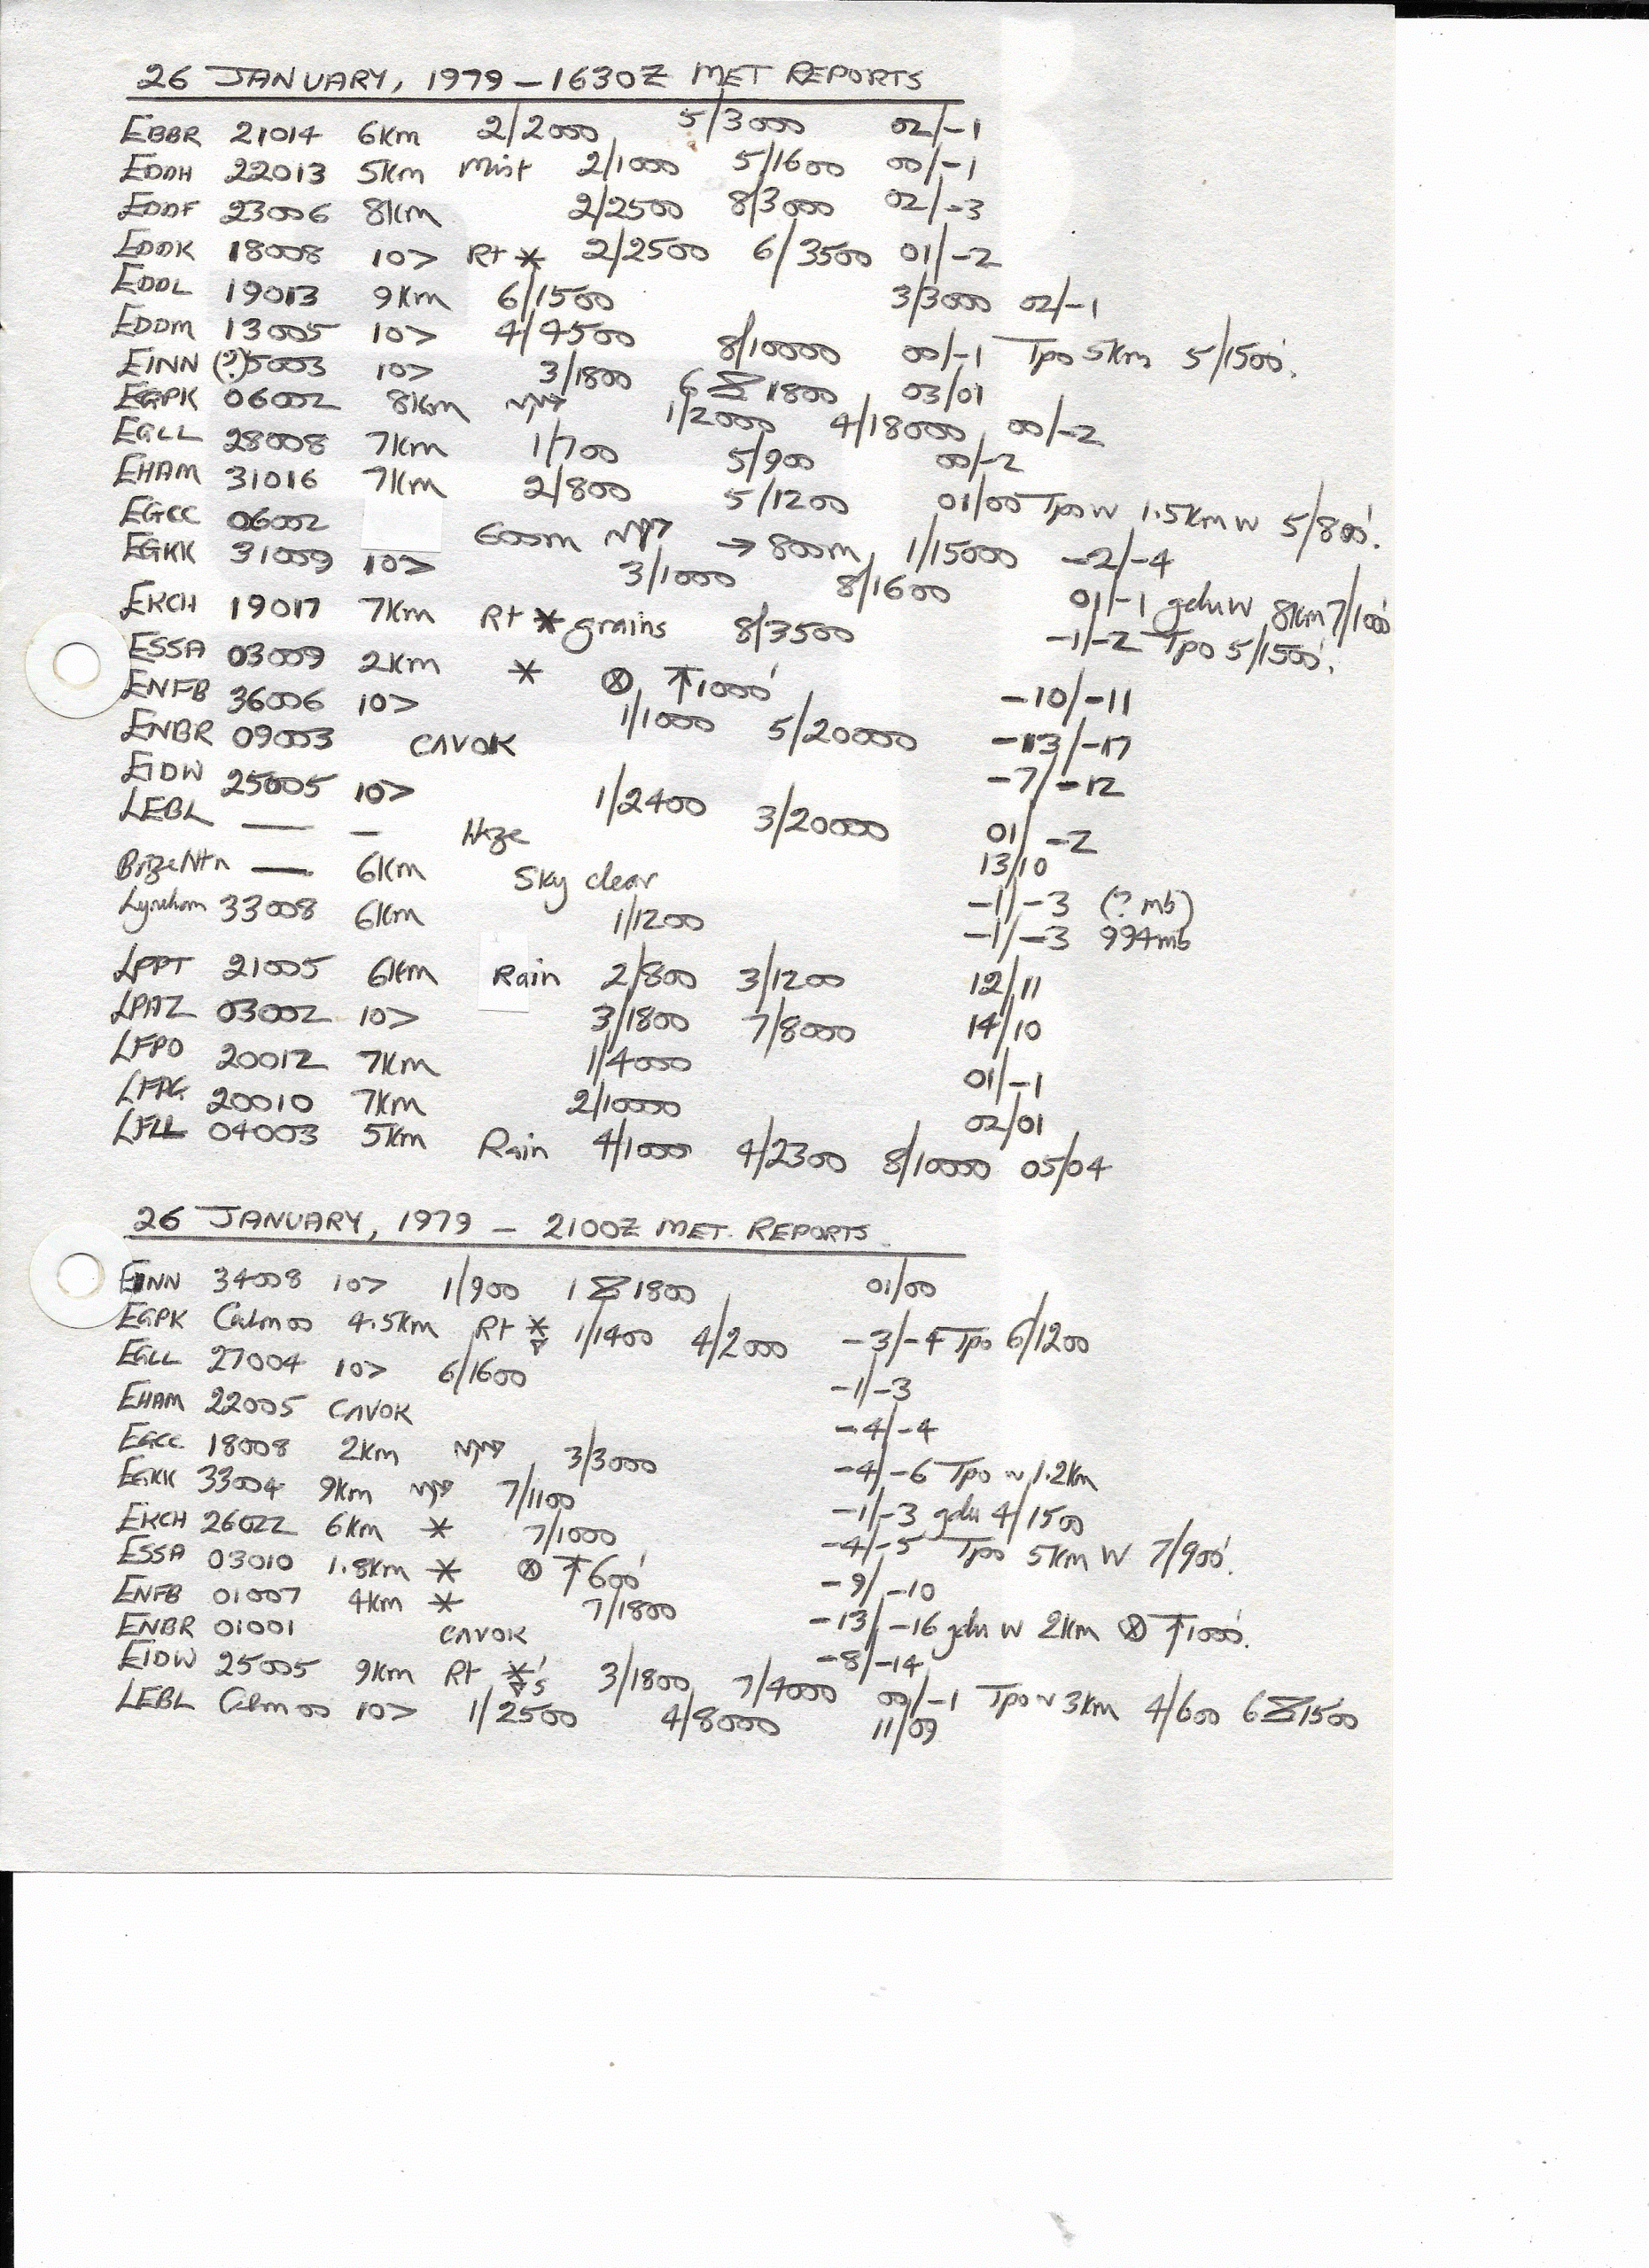 26 JANUARY, 1979 – 1630Z MET REPORTS
EBBR 21014 6Km 2/2000 5/3000 02/-1
EDDH 22013 5Km Mist 2/1000 5/1600 00/-1
EDDF 23006 8Km 2/2500 8/3000 02/-3
EDDK 18008 10> Rt * 2/2500 6/3500 01/-2
EDDL 19013 9Km 6/1500 3/3000 02/-1
EDDM 13005 10> 4/4500 8/10000 00/-1 Tpo 5Km 5/1500'.
EINN (?)5003 10> 3/1800 6 1800 03/01
EGPK 06002 8Km 1/2000 4/18000 00/-2
EGLL 28008 7Km 1/700 5/900 00/-2
EHAM 31016 7Km 2/800 5/1200 01/00 Tpo w 1.5Km w 5/800'.
EGCC 06002 600m → 800m 1/15000 -2/-4
EGKK 31009 10> 3/1000 8/1600 01/-1 gdu W 8Km 7/1000'
EKCH 19017 7Km Rt * grains 8/3500 -1/-2 Tpo 5/1500'.
ESSA 03009 2Km * ⊗ ↑1000' -10/-11
ENFB 36006 10> 1/1000 5/20000 -13/-17
ENBR 09003 CAVOK -7/-12
EIDW 25005 10> 1/2400 3/20000 01/-2
LEBL — – Haze 13/10
Brize Ntn — 6Km Sky clear -1/-3 (? mb)
Lyneham 33008 6Km 1/1200 -1/-3 994mb
LPPT 21005 6Km Rain 2/800 3/1200 12/11
LPAZ 03002 10> 3/1800 7/8000 14/10
LFPO 20012 7Km 1/4000 01/-1
LFPG 20010 7Km 2/10000 02/01
LFLL 04003 5Km Rain 4/1000 4/2300 8/10000 05/04
26 JANUARY, 1979 – 2100Z MET. REPORTS
EINN 34008 10> 1/900 1 1800 01/00
EGPK Calm 00 4.5Km Rt * 1/1400 4/2000 -3/-4 Tpo 6/1200
EGLL 27004 10> 6/1600 -1/-3
EHAM 22005 CAVOK -4/-4
EGCC 18008 2Km 3/3000 -4/-6 Tpo w 1.2Km
EGKK 33004 9Km 7/1100 -1/-3 gdu 4/1500
EKCH 26022 6Km * 7/1000 -4/-5 Tpo 5Km W 7/900'.
ESSA 03010 1.8Km * ⊗ ↑600' -9/-10
ENFB 01007 4Km * 7/1800 -13/-16 gdu W 2Km ⊗ ↑1000'.
ENBR 01001 CAVOK -8/-14
EIDW 25005 9Km Rt *'s 3/1800 7/4000 00/-1 Tpo w 3Km 4/600 6 1500
LEBL Calm 00 10> 1/2500 4/8000 11/09